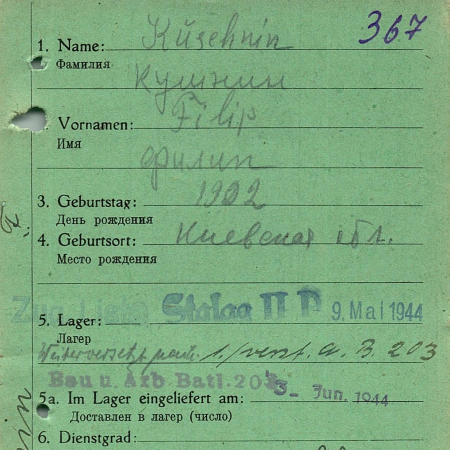 367
1. Name: Küschnin
Фамилия Кушнин
Vornamen: Filip
Имя Филип
3. Geburtstag: 1902
День рождения
4. Geburtsort: Киевская обл.
Место рождения
Stalag II D 9. Mai 1944
5. Lager:
Лагер
1./verst. a. B. 203
Bau u. Arb Batl. 203
3- Jun. 1944
5a. Im Lager eingeliefert am:
Доставлен в лагер (число)
6. Dienstgrad: